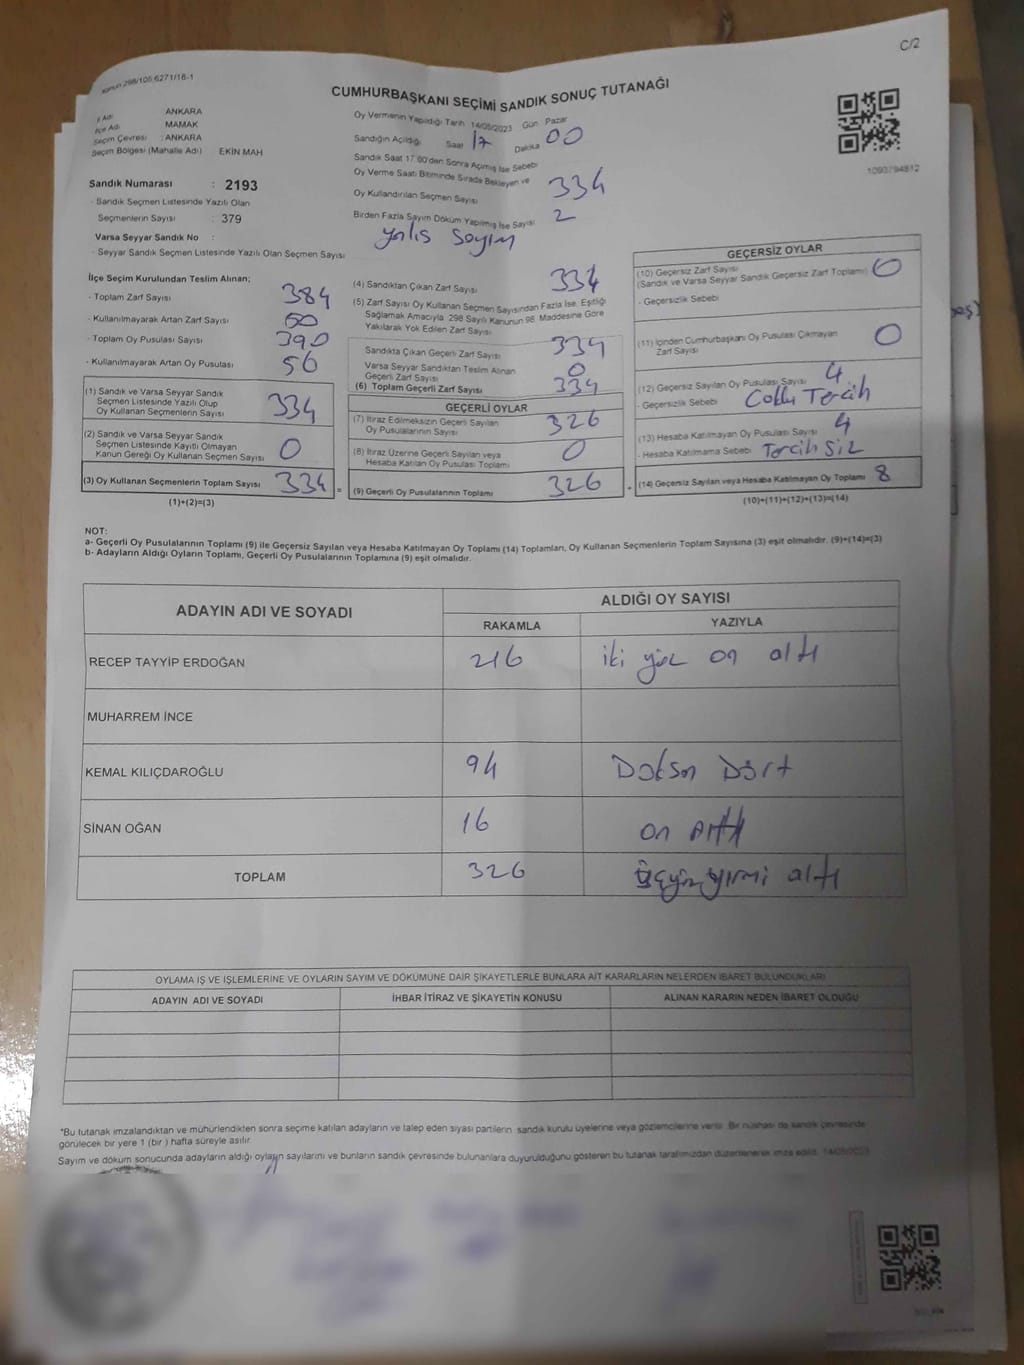 C/2
Kanun 298/105.6271/16-1
CUMHURBAŞKANI SEÇİMİ SANDIK SONUÇ TUTANAĞI
İl Adı ANKARA
İlçe Adı MAMAK
Seçim Çevresi : ANKARA
Seçim Bölgesi (Mahalle Adı) EKİN MAH
Oy Vermenin Yapıldığı Tarih : 14/05/2023 Gün Pazar
Sandığın Açıldığı Saat 17 Dakika 00
Sandık Saat 17.00'den Sonra Açılmış İse Sebebi
Oy Verme Saati Bitiminde Sırada Bekleyen ve
Oy Kullandırılan Seçmen Sayısı 334
Birden Fazla Sayım Döküm Yapılmış İse Sayısı 2
yalıs Sayım
1093794812
Sandık Numarası : 2193
- Sandık Seçmen Listesinde Yazılı Olan
Seçmenlerin Sayısı : 379
Varsa Seyyar Sandık No :
- Seyyar Sandık Seçmen Listesinde Yazılı Olan Seçmen Sayısı
İlçe Seçim Kurulundan Teslim Alınan;
- Toplam Zarf Sayısı 384
- Kullanılmayarak Artan Zarf Sayısı 50
- Toplam Oy Pusulası Sayısı 390
- Kullanılmayarak Artan Oy Pusulası 56
(1) Sandık ve Varsa Seyyar Sandık
Seçmen Listesinde Yazılı Olup
Oy Kullanan Seçmenlerin Sayısı 334
(2) Sandık ve Varsa Seyyar Sandık
Seçmen Listesinde Kayıtlı Olmayan
Kanun Gereği Oy Kullanan Seçmen Sayısı 0
(3) Oy Kullanan Seçmenlerin Toplam Sayısı 334 =
(1)+(2)=(3)
(4) Sandıktan Çıkan Zarf Sayısı 334
(5) Zarf Sayısı Oy Kullanan Seçmen Sayısından Fazla İse, Eşitliği
Sağlamak Amacıyla 298 Sayılı Kanunun 98. Maddesine Göre
Yakılarak Yok Edilen Zarf Sayısı
Sandıkta Çıkan Geçerli Zarf Sayısı 334
Varsa Seyyar Sandıktan Teslim Alınan
Geçerli Zarf Sayısı 0
(6) Toplam Geçerli Zarf Sayısı 334
GEÇERLİ OYLAR
(7) İtiraz Edilmeksizin Geçerli Sayılan
Oy Pusulalarının Sayısı 326
(8) İtiraz Üzerine Geçerli Sayılan veya
Hesaba Katılan Oy Pusulası Toplamı 0
(9) Geçerli Oy Pusulalarının Toplamı 326 +
GEÇERSİZ OYLAR
(10) Geçersiz Zarf Sayısı
(Sandık ve Varsa Seyyar Sandık Geçersiz Zarf Toplamı) 0
- Geçersizlik Sebebi
(11) İçinden Cumhurbaşkanı Oy Pusulası Çıkmayan
Zarf Sayısı 0
(12) Geçersiz Sayılan Oy Pusulası Sayısı 4
- Geçersizlik Sebebi Coklu Tercih
(13) Hesaba Katılmayan Oy Pusulası Sayısı 4
- Hesaba Katılmama Sebebi Tercih Siz
(14) Geçersiz Sayılan veya Hesaba Katılmayan Oy Toplamı 8
(10)+(11)+(12)+(13)=(14)
NOT:
a- Geçerli Oy Pusulalarının Toplamı (9) ile Geçersiz Sayılan veya Hesaba Katılmayan Oy Toplamı (14) Toplamları, Oy Kullanan Seçmenlerin Toplam Sayısına (3) eşit olmalıdır. (9)+(14)=(3)
b- Adayların Aldığı Oyların Toplamı, Geçerli Oy Pusulalarının Toplamına (9) eşit olmalıdır.
ADAYIN ADI VE SOYADI ALDIĞI OY SAYISI
RAKAMLA YAZIYLA
RECEP TAYYİP ERDOĞAN 216 iki yüz on altı
MUHARREM İNCE
KEMAL KILIÇDAROĞLU 94 Doksan Dört
SİNAN OĞAN 16 on Altı
TOPLAM 326 üçyüzyirmi altı
OYLAMA İŞ VE İŞLEMLERİNE VE OYLARIN SAYIM VE DÖKÜMÜNE DAİR ŞİKAYETLERLE BUNLARA AİT KARARLARIN NELERDEN İBARET BULUNDUKLARI
ADAYIN ADI VE SOYADI İHBAR İTİRAZ VE ŞİKAYETİN KONUSU ALINAN KARARIN NEDEN İBARET OLDUĞU
*Bu tutanak imzalandıktan ve mühürlendikten sonra seçime katılan adayların ve talep eden siyasi partilerin sandık kurulu üyelerine veya gözlemcilerine verilir. Bir nüshası da sandık çevresinde
görülecek bir yere 1 (bir) hafta süreyle asılır.
Sayım ve döküm sonucunda adayların aldığı oyların sayılarını ve bunların sandık çevresinde bulunanlara duyurulduğunu gösteren bu tutanak tarafımızdan düzenlenerek imza edildi. 14/05/2023